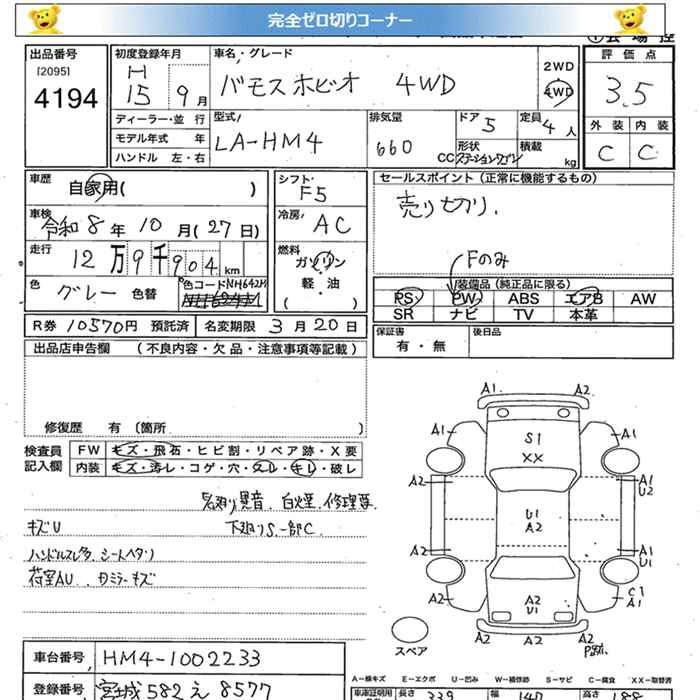 完全ゼロ切りコーナー
出品番号 初度登録年月 車名・グレード 2WD 4WD 評価点
[2095] 4194 H 15 9月 バモスホビオ 4WD 3.5
ディーラー・並行 型式 排気量 ドア 5 定員 4人 外装 内装
モデル年式 年 LA-HM4 660 CC 形状 ステーションワゴン 積載 kg C C
ハンドル 左・右
車歴 自家用( ) シフト F5 セールスポイント(正常に機能するもの)
車検 令和8年10月(27日) 冷房 AC 売り切り.
走行 12万9千904km 燃料 ガソリン Fのみ
色 グレー 色替 色コード NH642M 軽・油 ( ) 装備品(純正品に限る)
PS PW ABS エアB AW
SR ナビ TV 本革
R券 10570円 預託済 名変期限 3月20日 保証書 有・無 後日品
出品店申告欄 (不良内容・欠品・注意事項等記載)
修復歴 有 (箇所 )
検査員記入欄 FW キズ・飛石・ヒビ割・リペア跡・X要
内装 キズ・汚レ・コゲ・穴・スレ・キレ・破レ
異音 白煙 修理要
キズU 下廻りS.一部C
ハンドルスレ シートヘタリ
荷室AU. キズ
A1 A2
A1 S1 A1
XX
A2 A1 U2
U1 A2
A2 A1 U1
A2 A2 U1 C1 A1
A2 A2
スペア
車台番号 HM4-1002233
A-線キズ E-エクボ U-凹み W-補修跡 S-サビ C-腐食 XX-取替済
登録番号 宮城 582 え 8577 長さ 339 幅 147 高さ 188